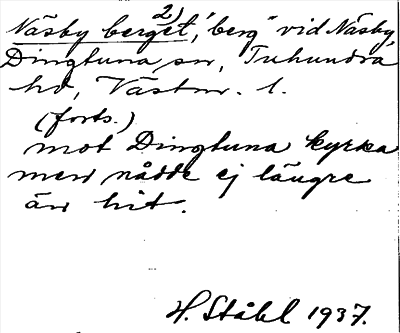 Näsby berget, 2) "berg" vid Näsby,
Dingtuna sn, Tuhundra
hd, Västm. l.
(forts.)
mot Dingtuna kyrka
men nådde ej längre
än hit.
H. Ståhl 1937.